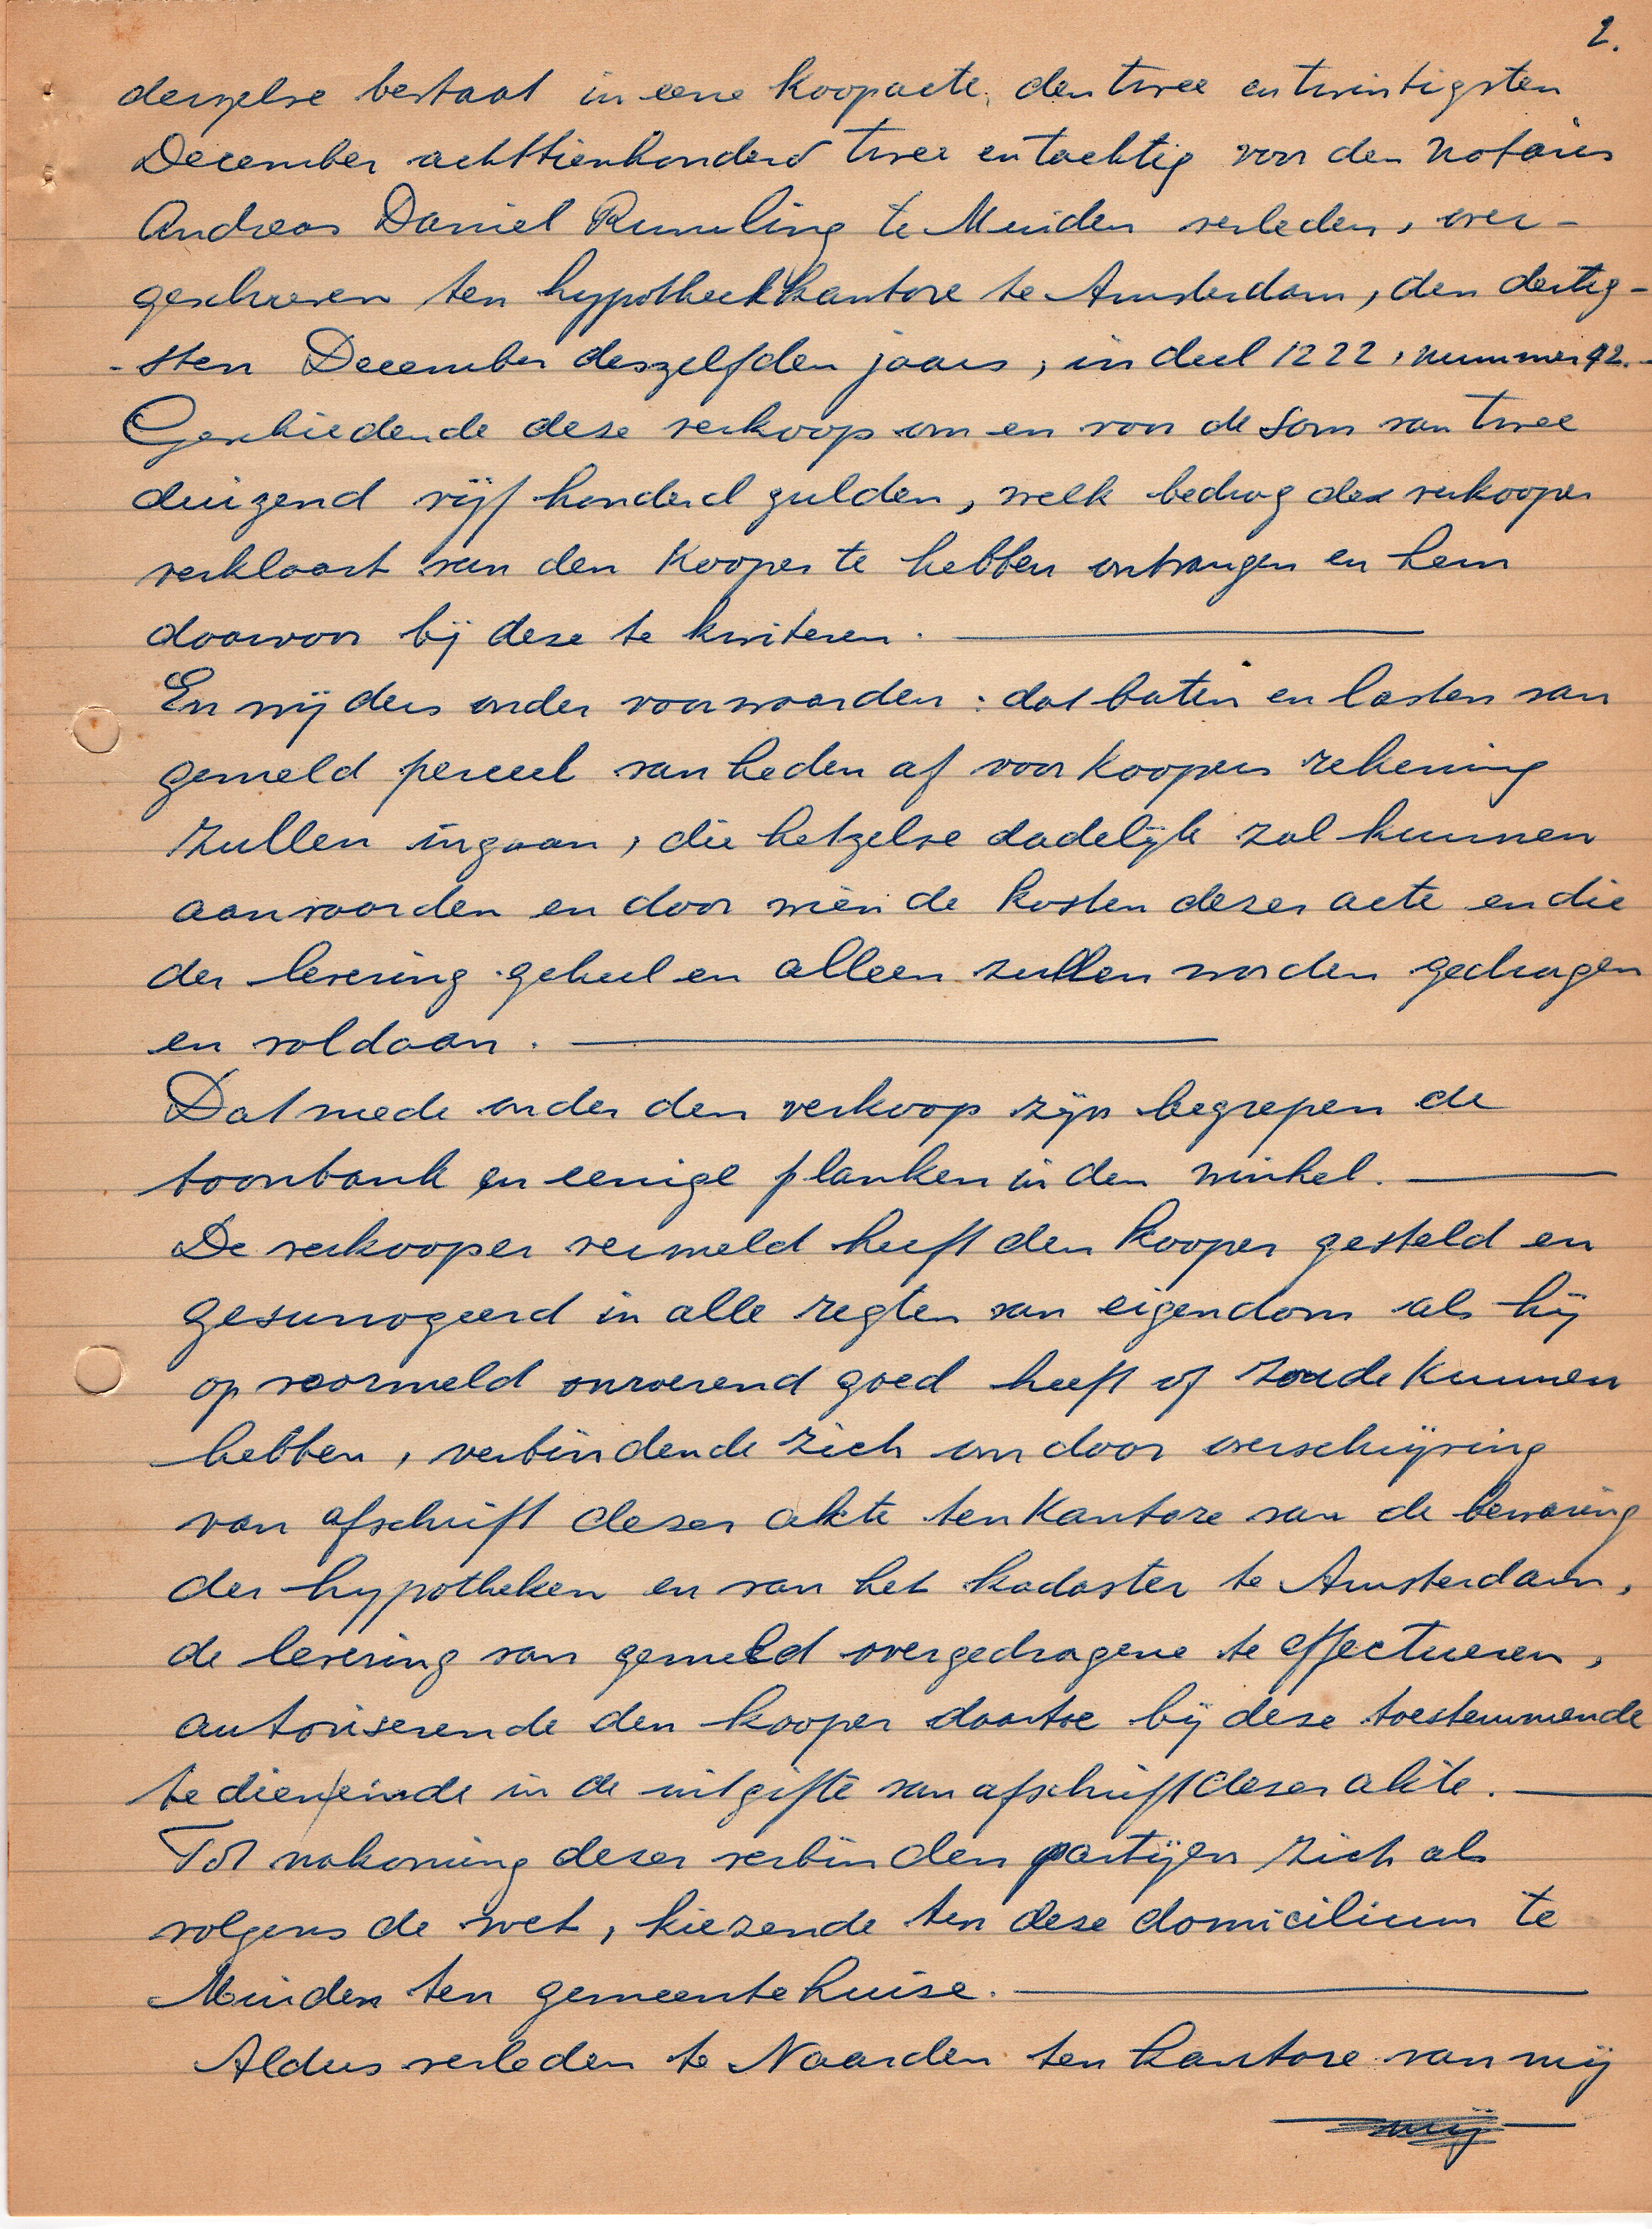 2.
derzelve bestaat in eene koopacte, den twee en twintigsten
December achttienhonderd twee en tachtig voor den Notaris
Andreas Daniel Rumling te Muiden verleden, over-
geschreven ten hypotheekkantore te Amsterdam, den dertig-
-sten December deszelfden jaars, in deel 1222, nummer 92.-
Geschiedende deze verkoop om en voor de som van twee
duizend vijf honderd gulden, welk bedrag de verkooper
verklaart van den kooper te hebben ontvangen en hem
daarvoor bij deze te kwiteren.
En wijders onder voorwaarden: dat baten en lasten van
gemeld perceel van heden af voor koopers rekening
zullen ingaan, die hetzelve dadelijk zal kunnen
aanvaarden en door wien de kosten dezer acte en die
der levering geheel en alleen zullen worden gedragen
en voldaan.
Dat mede onder den verkoop zijn begrepen de
toonbank en eenige planken in den winkel.
De verkooper vermeld heeft den kooper gesteld en
gesurrogeerd in alle regten van eigendom als hij
op voormeld onroerend goed heeft of zoude kunnen
hebben, verbindende zich om door overschrijving
van afschrift dezer akte ten kantore van de bewaring
der hypotheken en van het kadaster te Amsterdam,
de levering van gemeld overgedragene te effectueren,
autoriserende den kooper daartoe bij deze toestemmende
te dien einde in de uitgifte van afschrift dezer akte.
Tot nakoming dezer verbinden partijen zich als
volgens de wet, kiezende ten deze domicilium te
Muiden ten gemeentehuise.
Aldus verleden te Naarden ten kantore van mij
mij